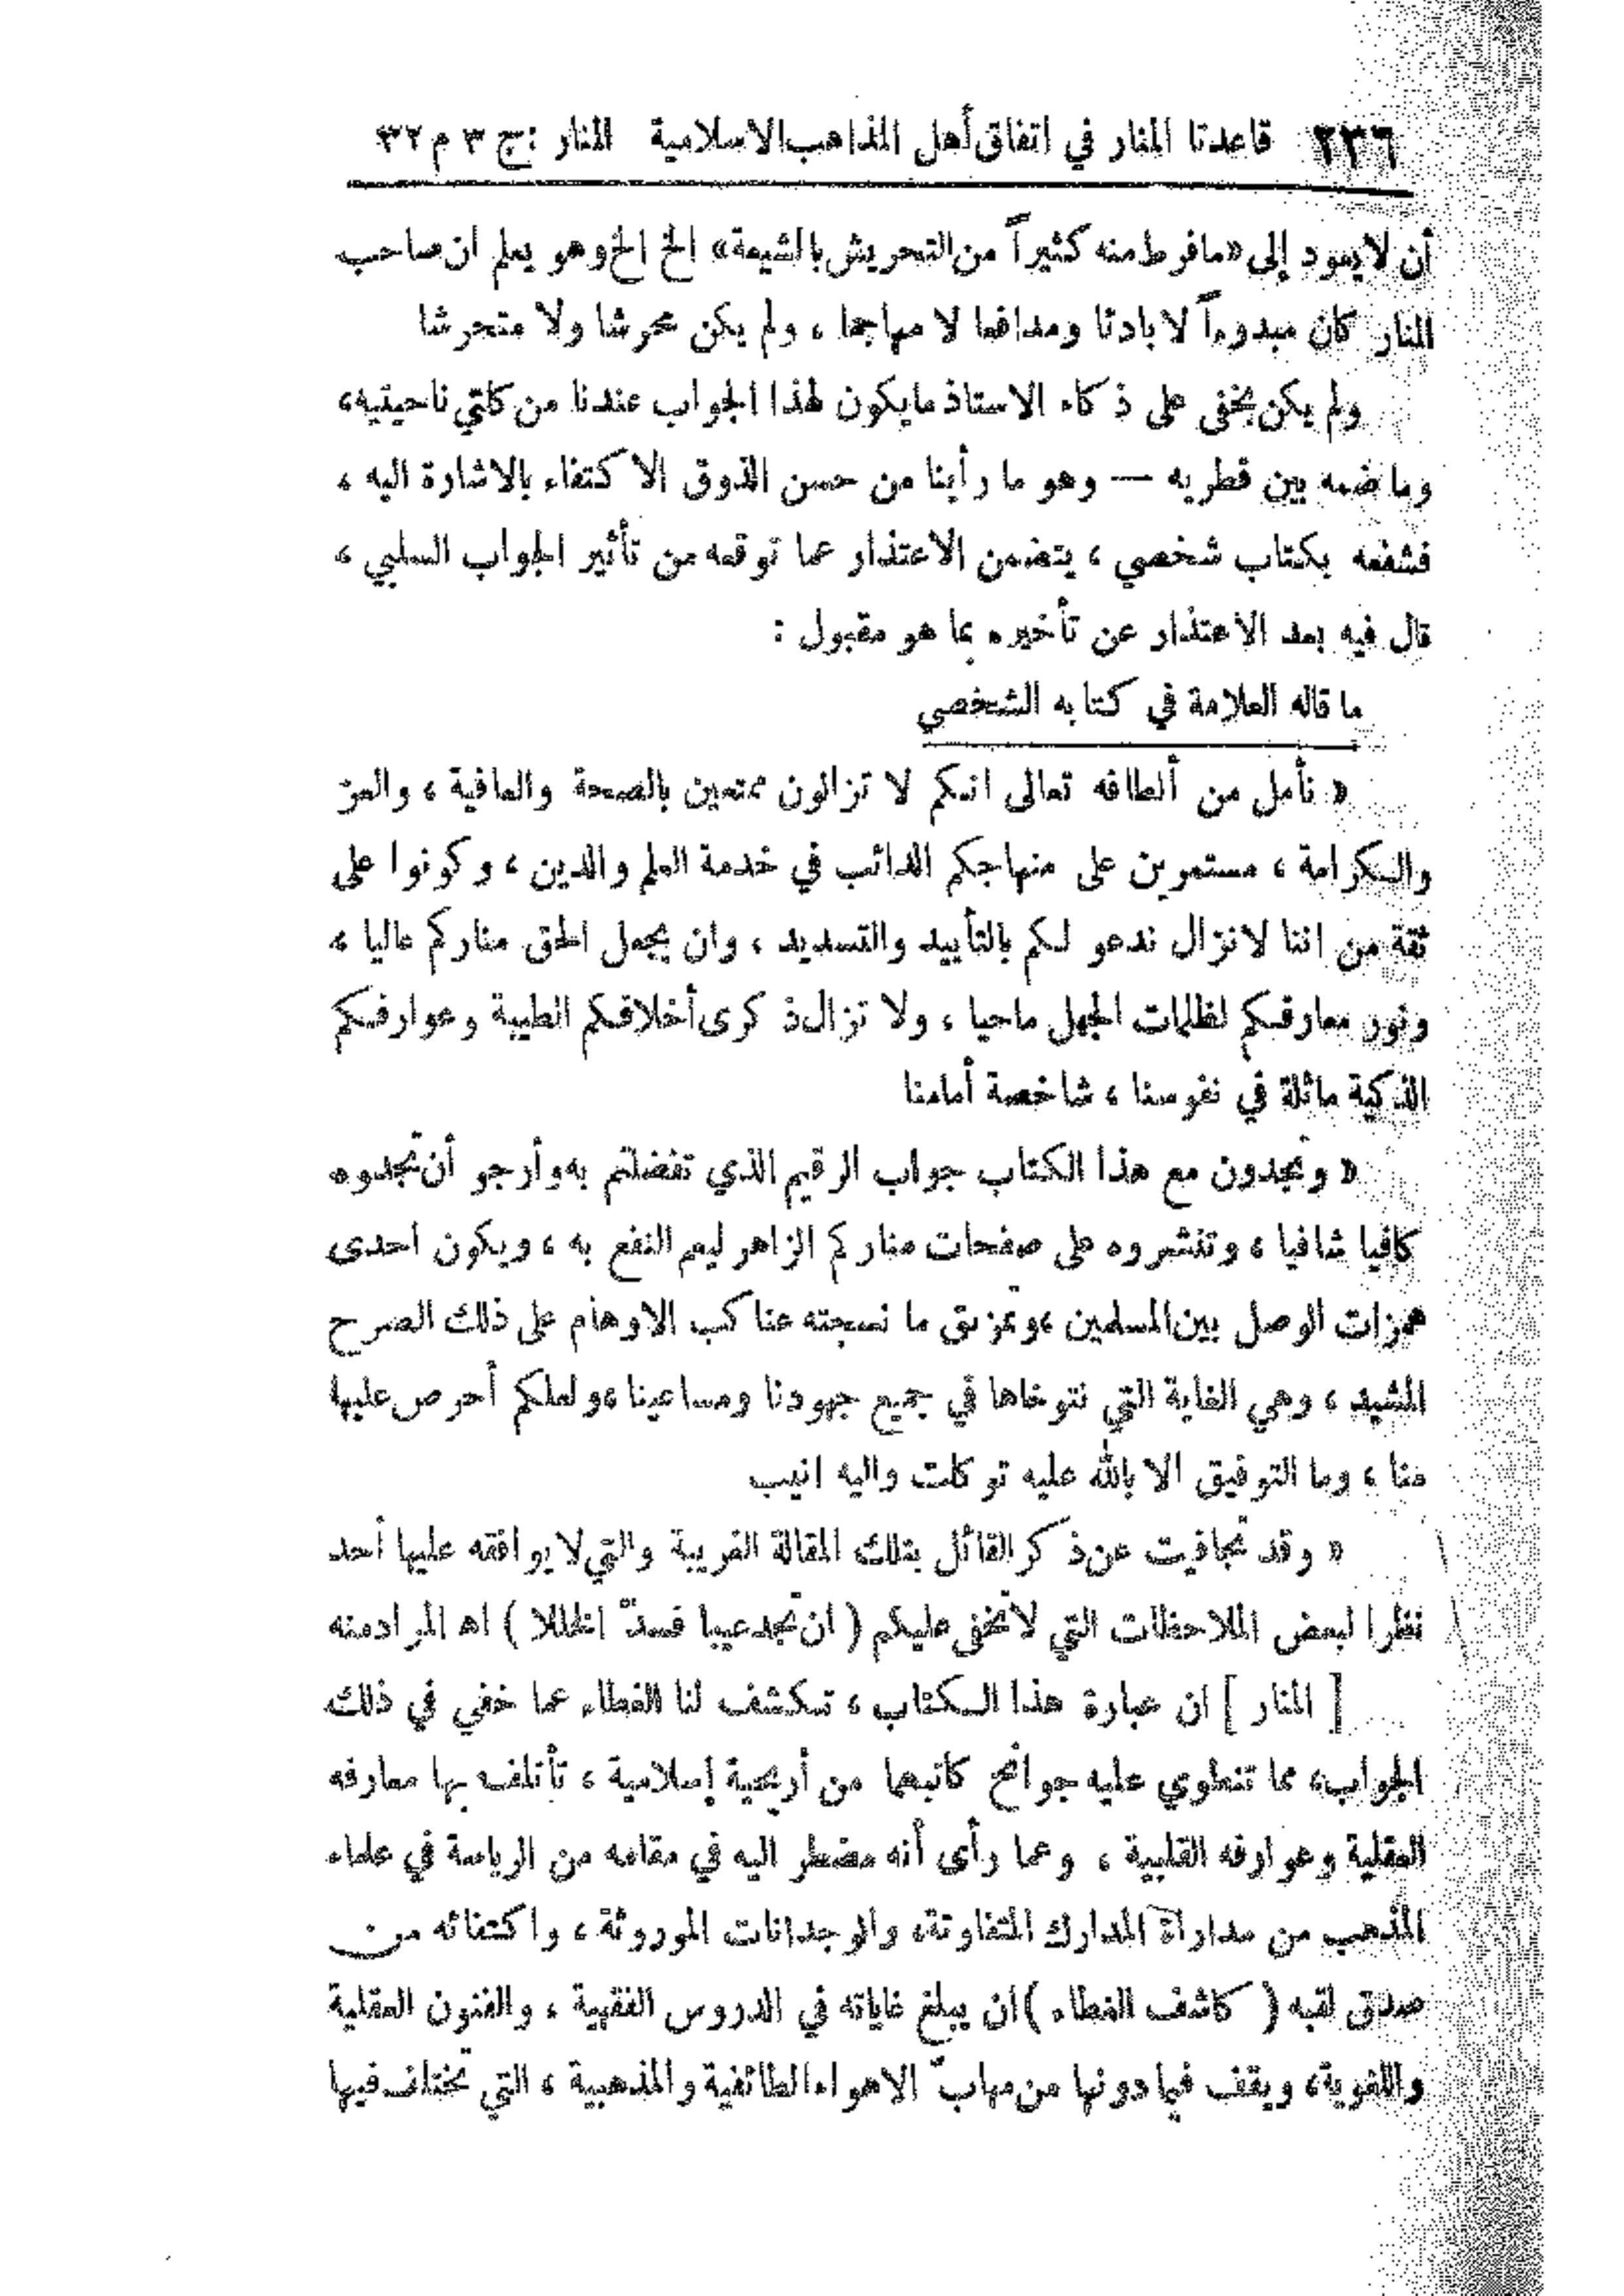 ٢٣٦ قاعدتا المنار في اتفاق أهل المذاهب الاسلامية المنار : ج ٣ م ٣٢
أن لا يعود إلى «ما فرط منه كثيراً من التحريش بالشيعة» الخ الخ وهو يعلم ان صاحب
المنار كان مبدوءاً لا بادئا ومدافعا لا مهاجما ، ولم يكن محرشا ولا متحرشا
ولم يكن يخفى على ذكاء الاستاذ ما يكون لهذا الجواب عندنا من كلتي ناحيتيه،
وما ضمه بين قطريه — وهو ما رأينا من حسن الذوق الاكتفاء بالاشارة اليه ،
فشفعه بكتاب شخصي ، يتضمن الاعتذار عما توقعه من تأثير الجواب السلبي ،
قال فيه بعد الاعتذار عن تأخيره بما هو مقبول :
ما قاله العلامة في كتابه الشخصي
« نأمل من ألطافه تعالى انكم لا تزالون ممتعين بالصحة والعافية ، والعز
والكرامة ، مستمرين على منهاجكم الدائب في خدمة العلم والدين ، وكونوا على
ثقة من اننا لا نزال ندعو لكم بالتأييد والتسديد ، وان يجعل الحق مناركم عاليا ،
ونور معارفكم لظلمات الجهل ماحيا ، ولا تزال ذكرى أخلاقكم الطيبة وعوارفكم
الذكية ماثلة في نفوسنا ، شاخصة أمامنا
« وتجدون مع هذا الكتاب جواب الرقيم الذي تفضلتم به وأرجو أن تجدوه
كافيا شافيا ، وتنشروه على صفحات مناركم الزاهر ليعم النفع به ، ويكون احدى
همزات الوصل بين المسلمين ،وتمزيق ما نسجته عناكب الاوهام على ذلك الصرح
المشيد ، وهي الغاية التي نتوخاها في جميع جهودنا ومساعينا ،ولعلكم أحرص عليها
منا ، وما التوفيق الا بالله عليه توكلت واليه انيب
« وقد تجافيت عن ذكر القائل بتلك المقالة الغريبة والتي لا يوافقه عليها أحد
نظرا لبعض الملاحظات التي لا تخفى عليكم ( ان تجد عيبا فسدّ الخللا ) اهـ المراد منه
[ المنار ] ان عبارة هذا الكتاب ، تكشف لنا الغطاء عما خفي في ذلك
الجواب، مما تنطوي عليه جوانح كاتبهما من أريحية إسلامية ، تأتلف بها معارفه
العقلية وعوارفه القلبية ، وعما رأى أنه مضطر اليه في مقامه من الرياسة في علماء
المذهب من مداراة المدارك المتفاوتة، والوجدانات الموروثة ، واكتفائه من
صدق لقبه ( كاشف الغطاء ) ان يبلغ غاياته في الدروس الفقهية ، والفنون العقلية
واللغوية، ويقف فيما دونها من مهابّ الاهواء الطائفية والمذهبية ، التي تختلف فيها